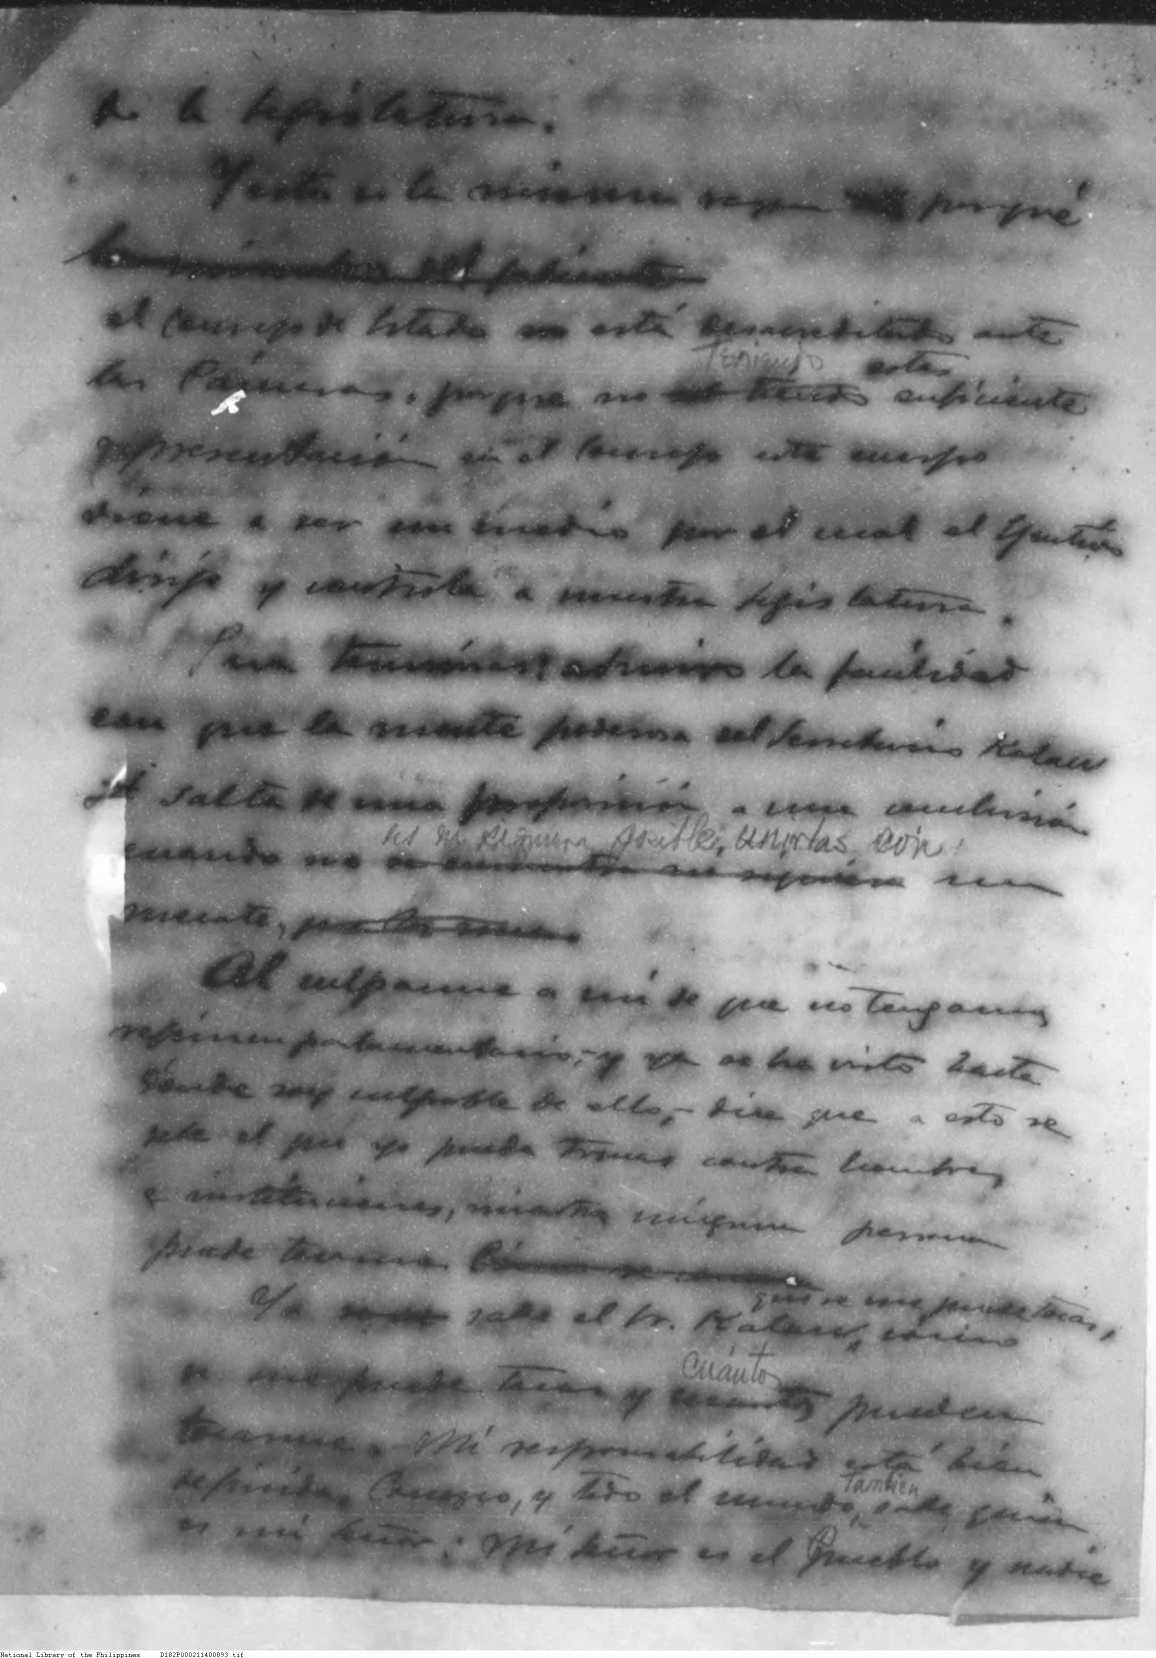 de la legislatura.
Y esta es la misma razon porqué
el Consejo de Estado no está desacreditado ante
teniendo estas
las Cámaras, porque no suficiente
representación en el Consejo este cuerpo
viene a ser un medio por el cual el Ejecutivo
dirije y controla a nuestra legislatura.
Para terminar, admiro la facilidad
con que la mente poderosa del Secretario Kalaw
salta de una proposición a una conclusión
es ni siquiera posible, unirlas con
cuando no un
puente,
Al culparme a mí de que no tengamos
régimen parlamentario,- y ya se ha visto hasta
dónde soy culpable de ello,- dice que a esto se
debe el que yo pueda tronar contra hombres
e instituciones, mientras ninguna persona
puede tocarme.
quién me puede tocar,
Ya sabe el Sr. Kalaw, cómo
cuántos
se me puede tocar y cuantos pueden
tocarme. Mi responsabilidad está bien
también
definida. Conozco, y todo el mundo, sabe quién
es mi Señor: Mi Señor es el Pueblo y nadie
National Library of the Philippines D182P000211400893.tif